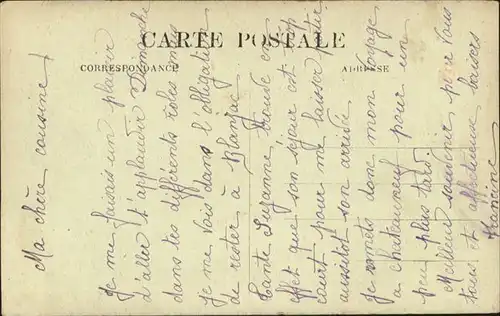 CARTE POSTALE
CORRESPONDANCE
ADRESSE
Ma chère cousine,
Je me faisais un plaisir
d'aller t'applaudir Dimanche
dans tes différents rôles mais
je me vois dans l'obligation
de rester à Blanzac
tante Suzanne trouve en
effet que son séjour est trop
court pour me laisser partir
aussitôt son arrivée
Je remets donc mon voyage
a chateauneuf pour un
peu plus tard.
Meilleur souvenir pour vous
tous et affectueux baisers
Francine